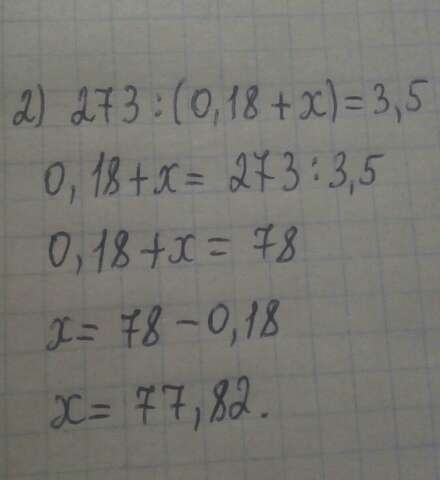 2) 273 : (0,18 + x) = 3,5
0,18 + x = 273 : 3,5
0,18 + x = 78
x = 78 - 0,18
x = 77,82.